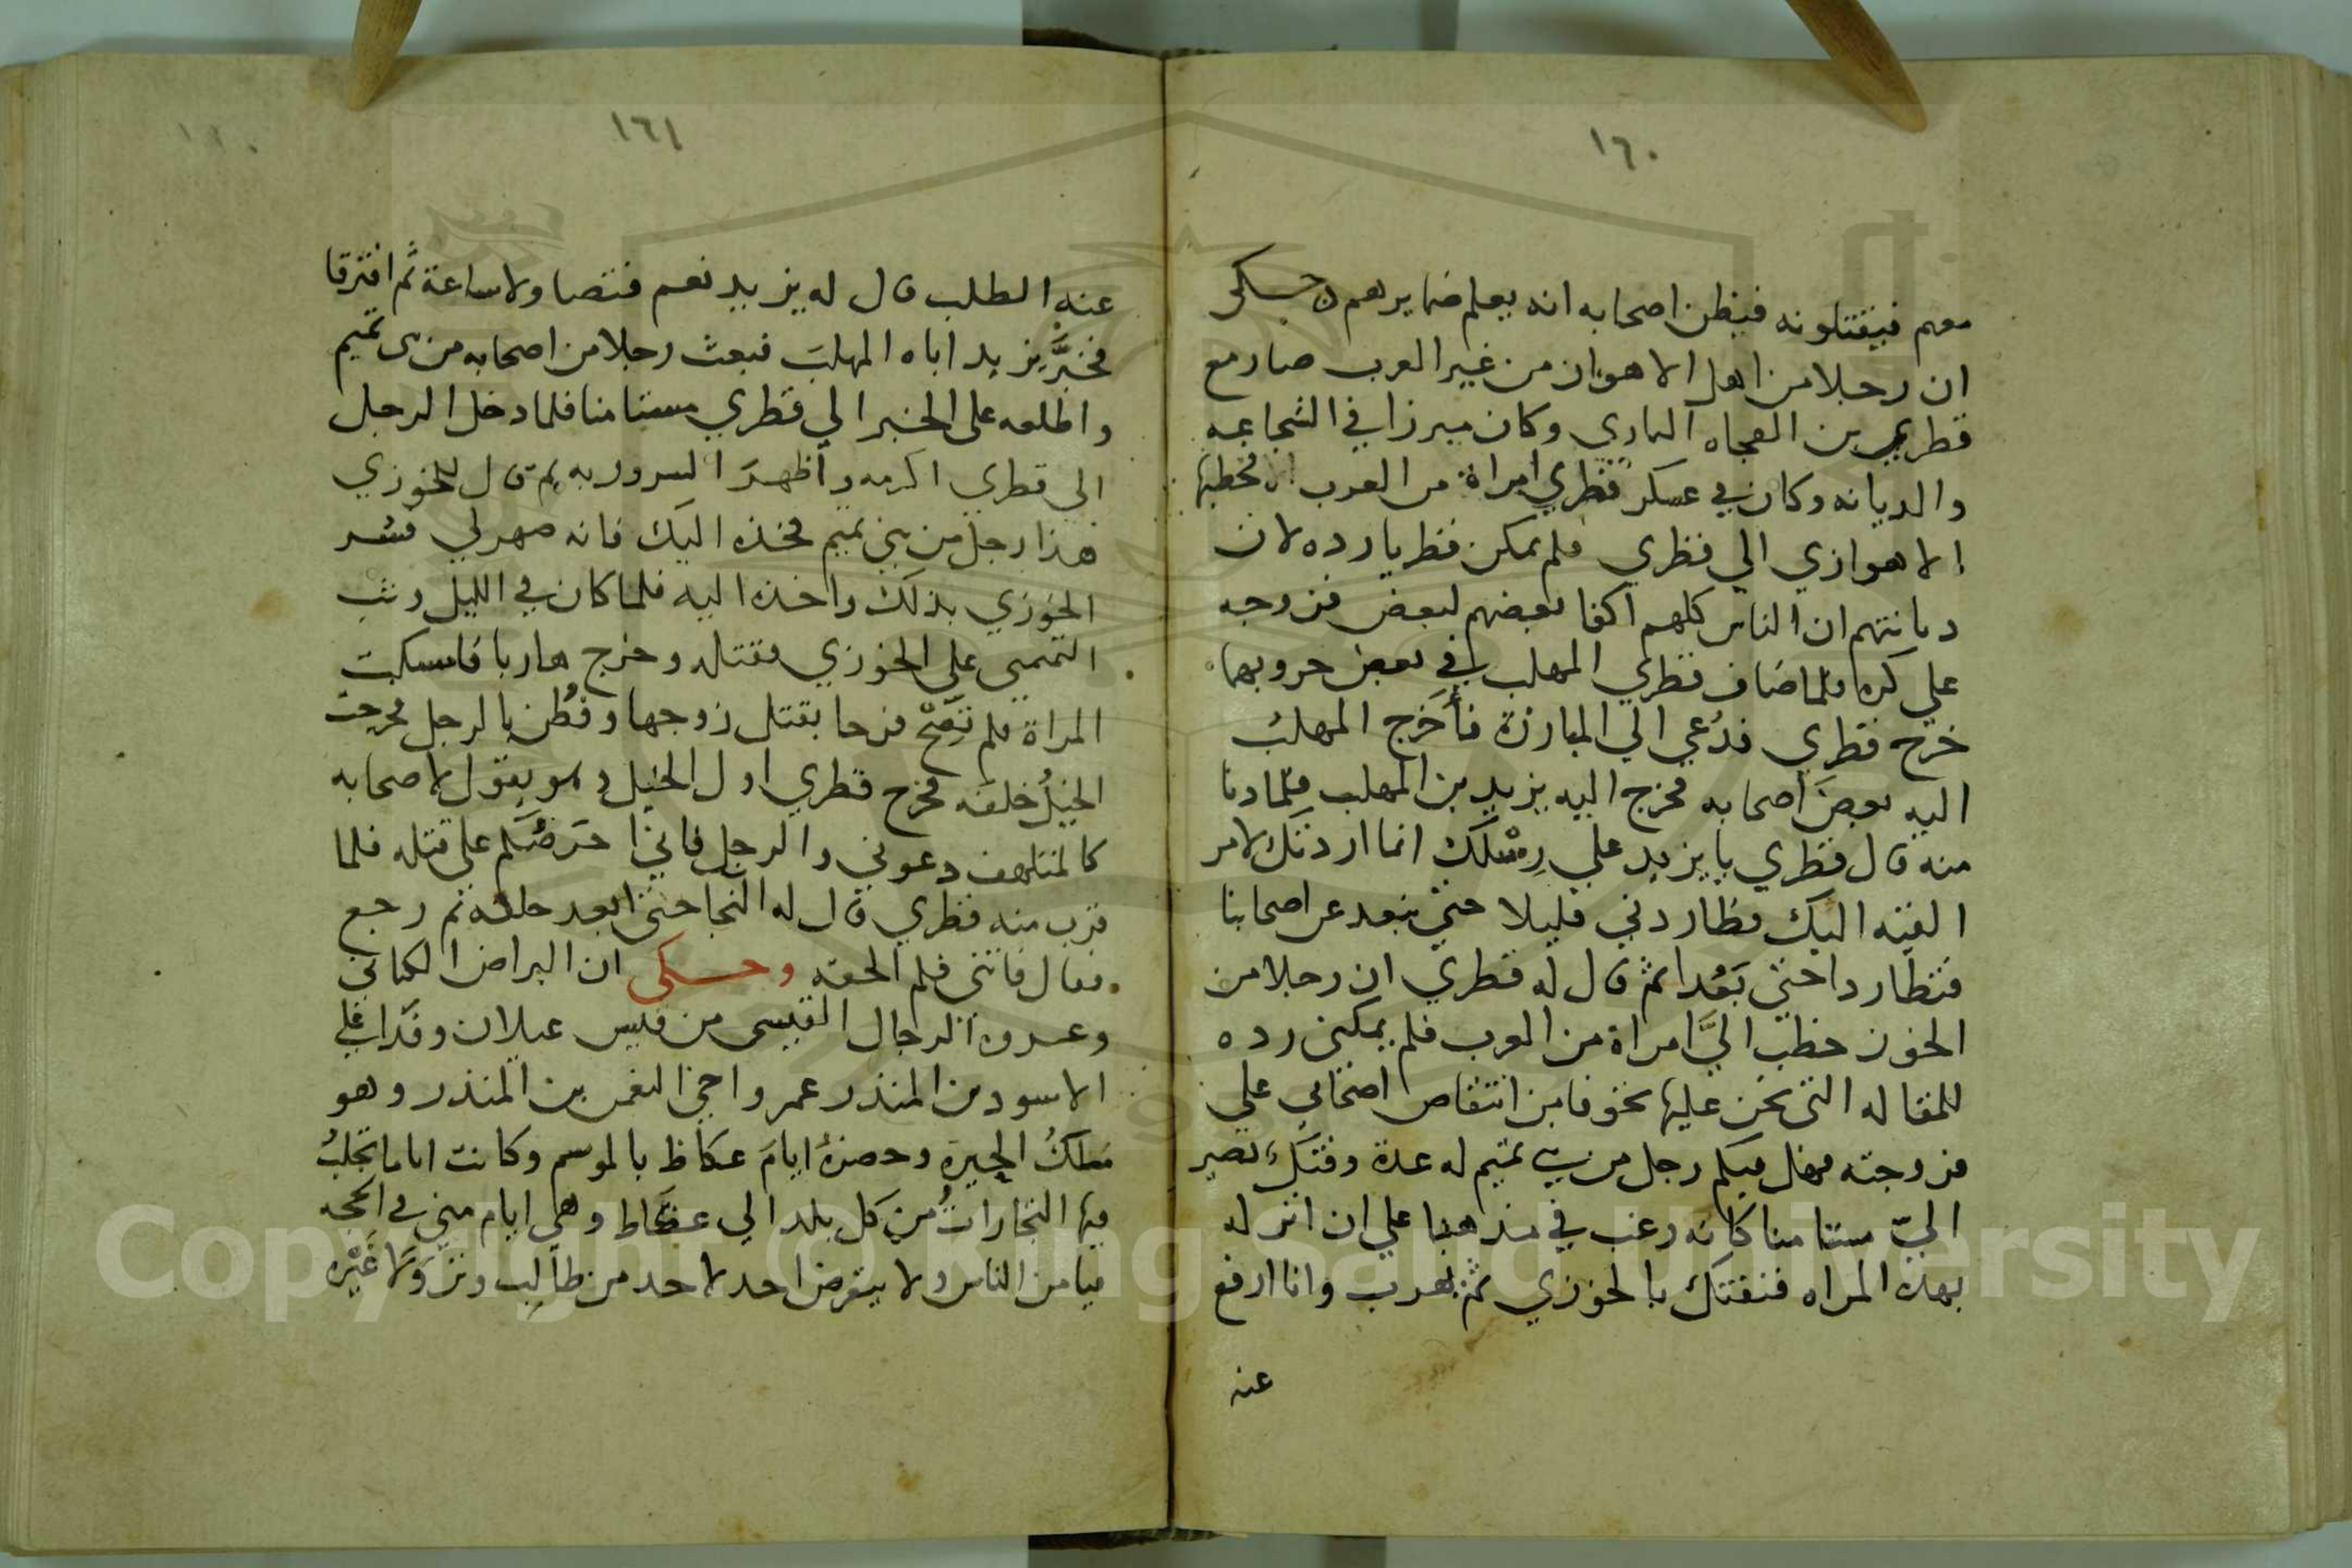 ١٦٠
معهم فيقتلونه فيظن اصحابه انه يعلم ضمايرهم حكى
ان رجلا من اهل الاهواز من غير العرب صار مع
قطري بن الفجاه المازي وكان مبرزا في الشجاعه
والديانه وكان في عسكر قطري امراة من العرب فخطبها
الاهوازي الي قطري فلم يمكن قطريا رده لان
ديانتهم ان الناس كلهم اكفا بعضهم لبعض فزوجه
علي كره فلما ضاف قطري المهلب في بعض حروبهما
خرج قطري فدُعي الي المبارزة فأخرج المهلبُ
اليه بعضَ اصحابه فخرج اليه يزيد بن المهلب فلما دنا
منه قال قطري يا يزيد علي رِسْلك انما اردتك لامر
القيته اليك فطاردني قليلا حتي نبعد عن اصحابنا
فتطاردا حتي بَعُدا ثم قال له قطري ان رجلا من
الخوز خطب اليَّ امراة من العرب فلم يمكني رده
للمقاله التي نحن عليها تخوفا من انتقاص اصحابي علي
فزوجته فهل فيكم رجل من بني تميم له عدة وفتك يصير
اليّ مستامنا كانه رغب في مذهبنا علي ان انزله
بهذه المراه فنفتك بالخوزي ثم يهرب وانا ارفع
عنه
١٦١
عنه الطلب قال له يزيد نعم فتصاولا ساعة ثم افترقا
فخبَّر يزيد اباه المهلبَ فبعث رجلا من اصحابه من بنى تميم
واطلعه على الخبر الي قطري مستامنا فلما دخل الرجل
الى قطري اكرمه واظهرَ السرور به ثم قال للخوزي
هذا رجل من بني تميم فخذه اليك فانه صهر لي فسر
الخوزي بذلك واخذه اليه فلما كان في الليل وثب
التميمى علي الخوزي فقتله وخرج هاربا فامسكت
المراة فلم تَصِحْ فرحا بقتل زوجها وفُطن بالرجل فخرجت
الخيلُ خلفه فخرج قطري اول الخيل وهو يقول لاصحابه
كالمتلهف دعوني والرجل فاني احرضكم على قتله فلما
قرب منه قطري قال له النجا حتي ابعد خلفه ثم رجع
فقال فاتني فلم الحقه وحكى ان البراض الكناني
وعروة الرجال القيسى من قيس عيلان وفدا علي
الاسود بن المنذر عمرو اخي النعمن بن المنذر وهو
مَلكُ الحِيرة وحضرهُ ايامَ عكاظ بالموسم وكانت اياما تجلبُ
فيها التجاراتُ من كل بلد الي عكاظ وهي ايام مني في الحجه
يامن الناس ولا يتعرض احد لاحد من طالِب وتر وَلا غيْره